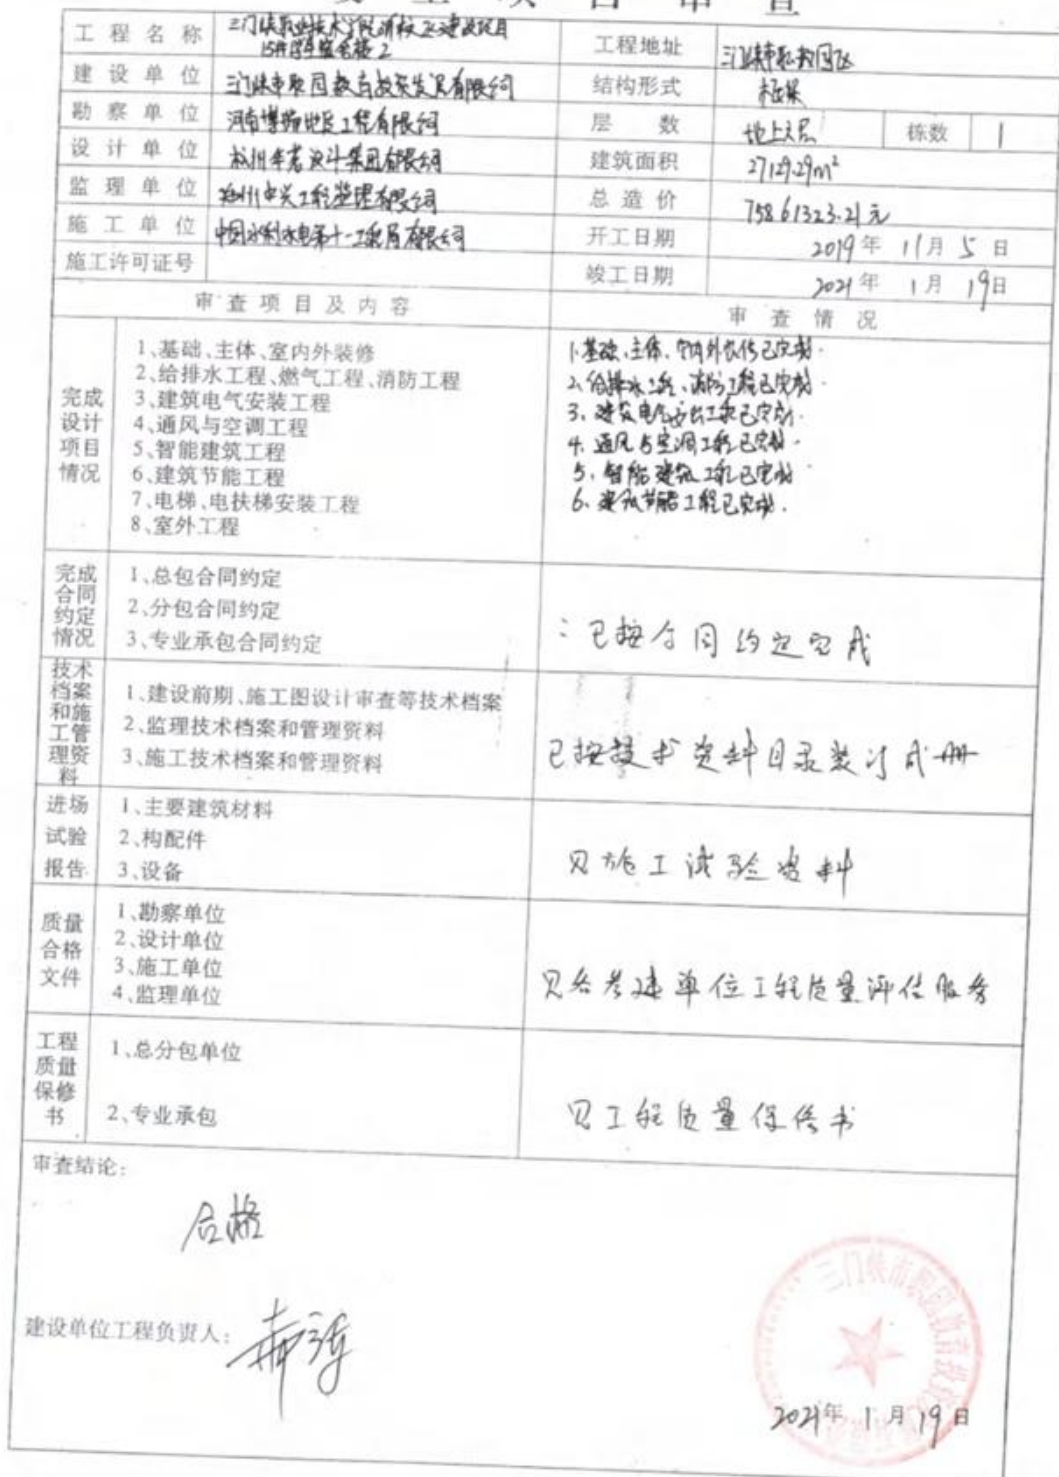 竣工项目审查
工程名称 三门峡职业技术学院新校区建设项目
15#学生宿舍楼2
工程地址 三门峡市职教园区
建设单位 三门峡市职园教育投资发展有限公司
结构形式 框架
勘察单位 河南博 地质工程有限公司
层数 地上六层 栋数 1
设计单位 杭州 设计集团有限公司
建筑面积 27129.29m²
监理单位 郑州中兴工程监理有限公司
总造价 75861323.21元
施工单位 中国水利水电第十一工程局有限公司
开工日期 2019年11月5日
施工许可证号
竣工日期 2021年1月19日
审查项目及内容 审查情况
完成设计项目情况
1、基础、主体、室内外装修
2、给排水工程、燃气工程、消防工程
3、建筑电气安装工程
4、通风与空调工程
5、智能建筑工程
6、建筑节能工程
7、电梯、电扶梯安装工程
8、室外工程
1.基础、主体、室内外装修已完成.
2、给排水工程、消防工程已完成.
3、建筑电气安装工程已完成.
4、通风与空调工程已完成.
5、智能建筑工程已完成
6、建筑节能工程已完成.
完成合同约定情况
1、总包合同约定
2、分包合同约定
3、专业承包合同约定
已按合同约定完成
技术档案和施工管理资料
1、建设前期、施工图设计审查等技术档案
2、监理技术档案和管理资料
3、施工技术档案和管理资料
已按技术资料目录装订成册
进场试验报告
1、主要建筑材料
2、构配件
3、设备
见施工试验资料
质量合格文件
1、勘察单位
2、设计单位
3、施工单位
4、监理单位
见各参建单位工程质量评估服务
工程质量保修书
1、总分包单位
2、专业承包
见工程质量保修书
审查结论:
合格
建设单位工程负责人:
三门峡市职园教育投资
2021年1月19日